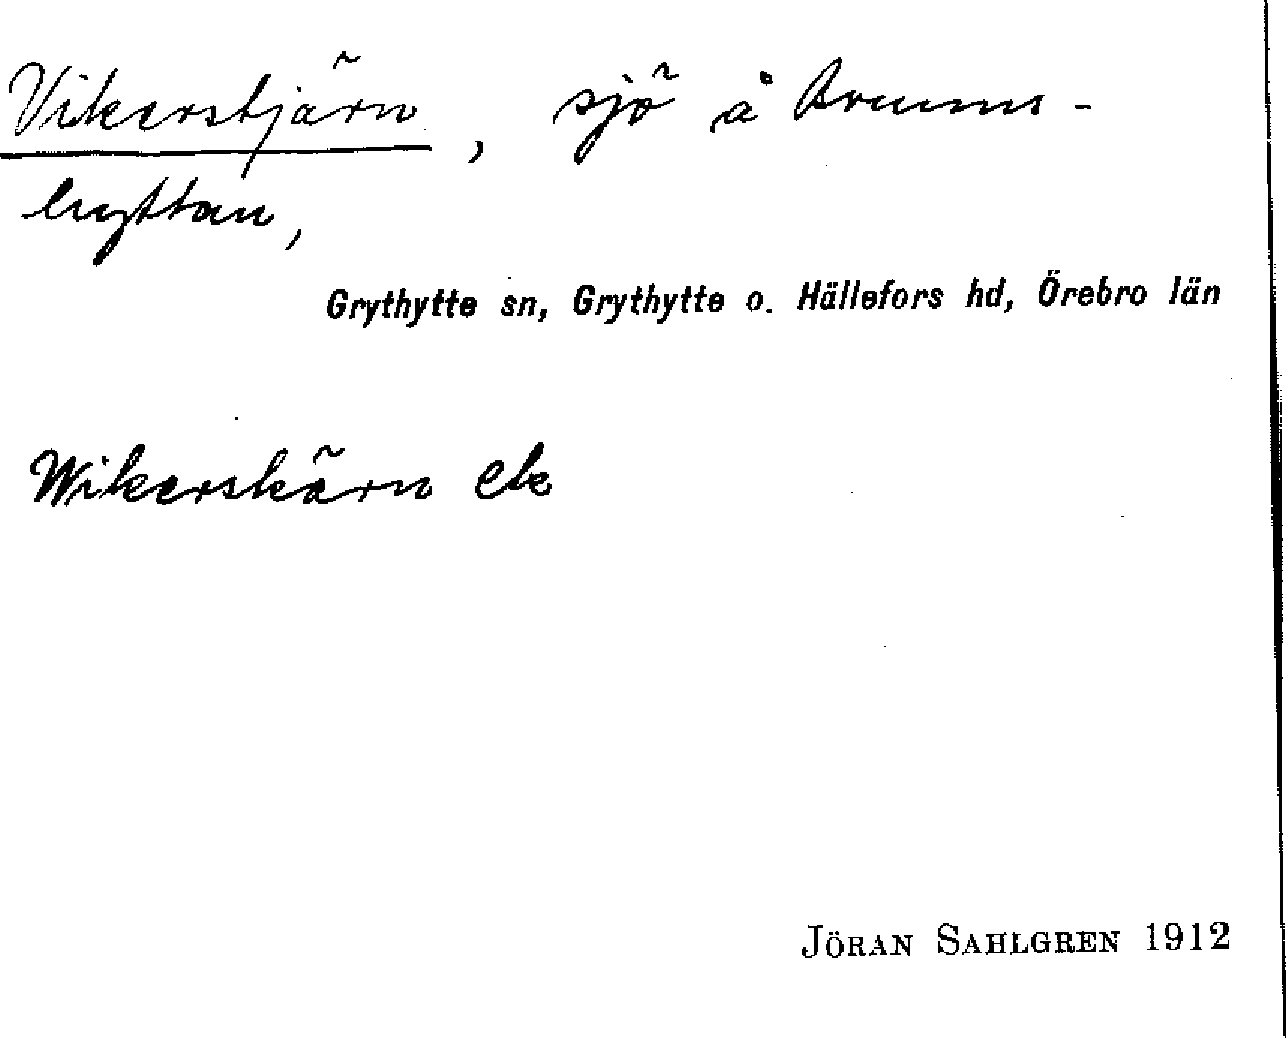 Vikerstjärn, sjö å Brunns-
hyttan,
Grythytte sn, Grythytte o. Hällefors hd, Örebro län
Wikerskärn ek
JÖRAN SAHLGREN 1912